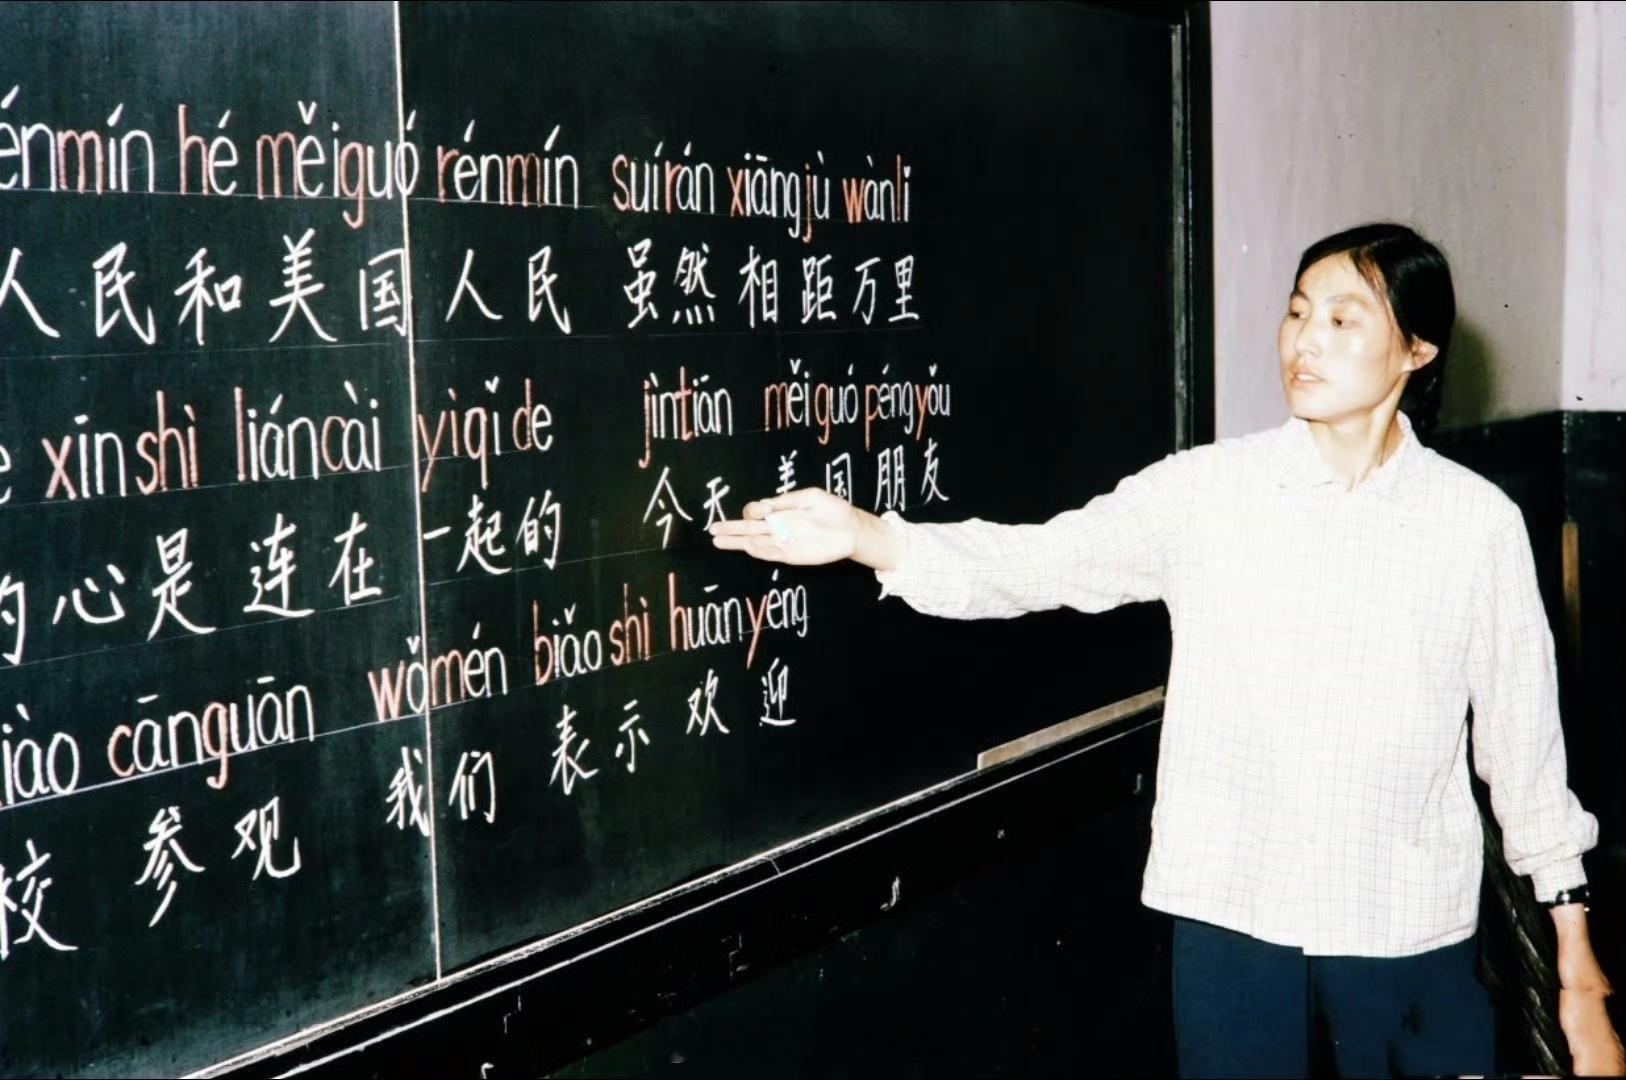 énmín hé měiguó rénmín suírán xiāngjù wànli
人民和美国人民 虽然相距万里
e xīnshì liáncài yìqǐde jīntiān měiguó péngyǒu
的心是连在一起的 今天美国朋友
iào cānguān wǒmén biǎoshì huānyéng
校 参观 我们 表示 欢迎